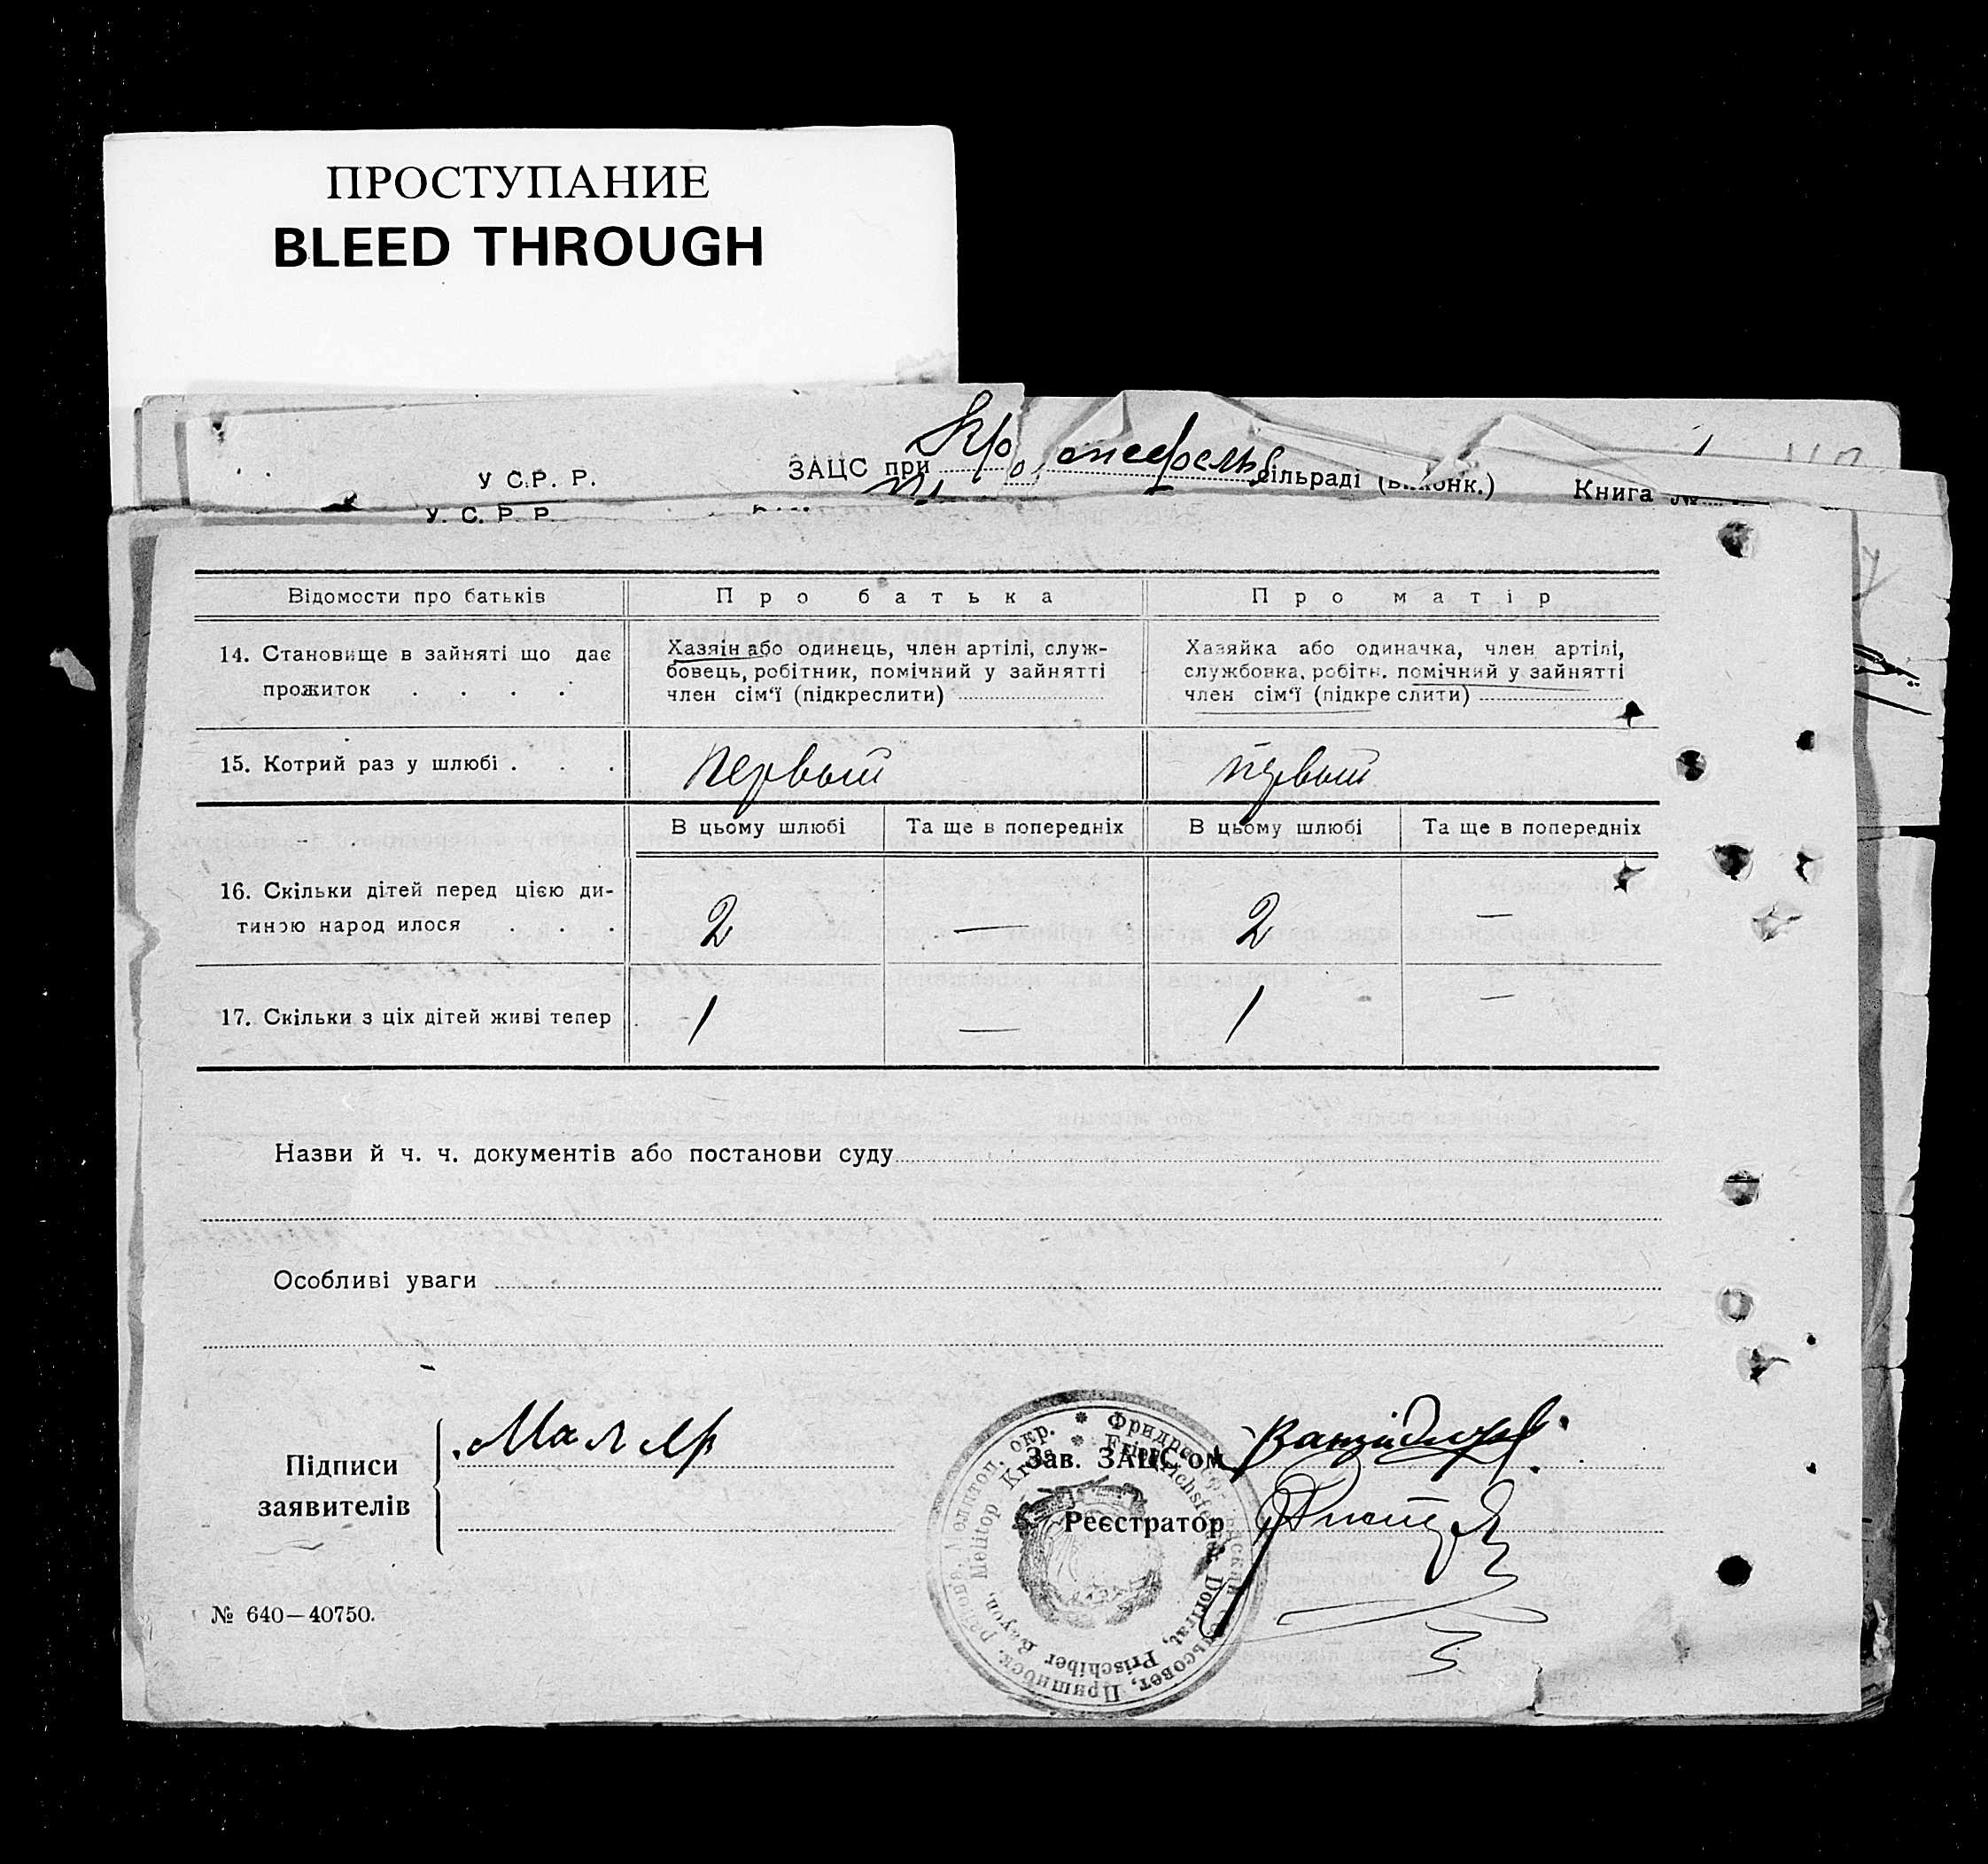 ПРОСТУПАНИЕ
BLEED THROUGH
У С.Р. Р. ЗАЦС при сільраді Книга №
У. С. Р. Р.
Відомости про батьків Про батька Про матір
14. Становище в зайняті що дає прожиток . . . .
Хазяін або одинець, член артілі, служ-
бовець, робітник, помічний у зайнятті
член сім'ї (підкреслити)
Хазяйка або одиначка, член артілі,
службовка, робітн. помічний у зайнятті
член сім'ї (підкреслити)
15. Котрий раз у шлюбі . . . первый первый
В цьому шлюбі Та ще в попередніх В цьому шлюбі Та ще в попередніх
16. Скільки дітей перед цією ди-
тиною народилося . . . 2 — 2 —
17. Скільки з ціх дітей живі тепер 1 — 1 —
Назви й ч. ч. документів або постанови суду
Особливі уваги
Підписи
заявителів
Зав. ЗАЦС'ом
Реєстратор
Сельсовет, Пришибск. района, Мелитоп. окр.
Friedrichsfelder Dorfrat, Prischiber Rayon, Melitop Kreis
№ 640—40750.